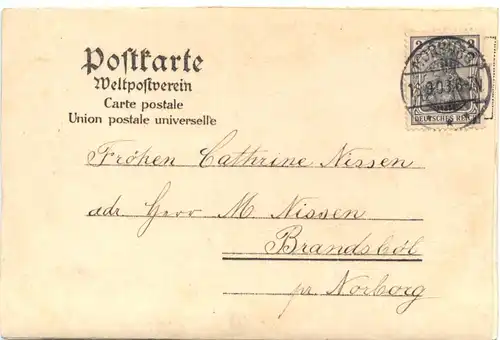 Postkarte
Weltpostverein
Carte postale
Union postale universelle
2 2
NORBURG
DEUTSCHES REICH
Fröken Cathrine Nissen
adr. Herr M. Nissen
Brandsböl
pr. Norborg